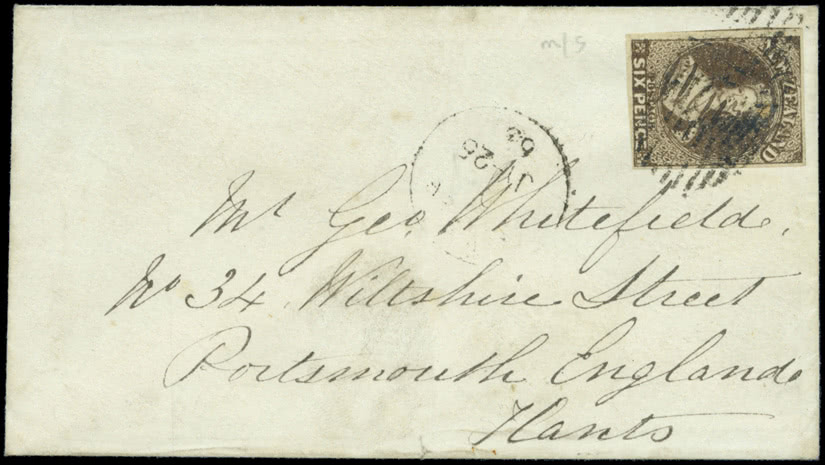 m/s
NEW ZEALAND
SIX PENCE
JA 25
63
Mr Geo. Whitefield,
No 34 Wiltshire Street
Portsmouth England
Hants